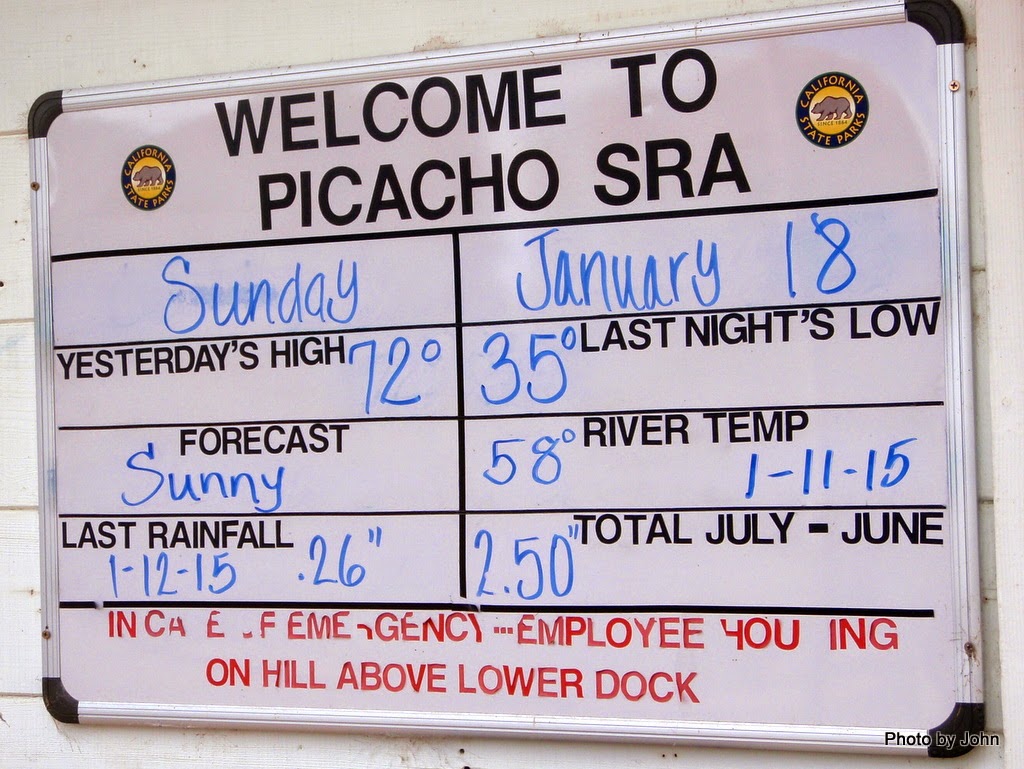 WELCOME TO
PICACHO SRA
CALIFORNIA STATE PARKS
SINCE 1864
CALIFORNIA STATE PARKS
SINCE 1864
Sunday January 18
YESTERDAY'S HIGH 72° 35° LAST NIGHT'S LOW
FORECAST
Sunny
58° RIVER TEMP
1-11-15
LAST RAINFALL
1-12-15 .26"
2.50" TOTAL JULY - JUNE
IN CA E F EME GENCY --- EMPLOYEE HOU ING
ON HILL ABOVE LOWER DOCK
Photo by John